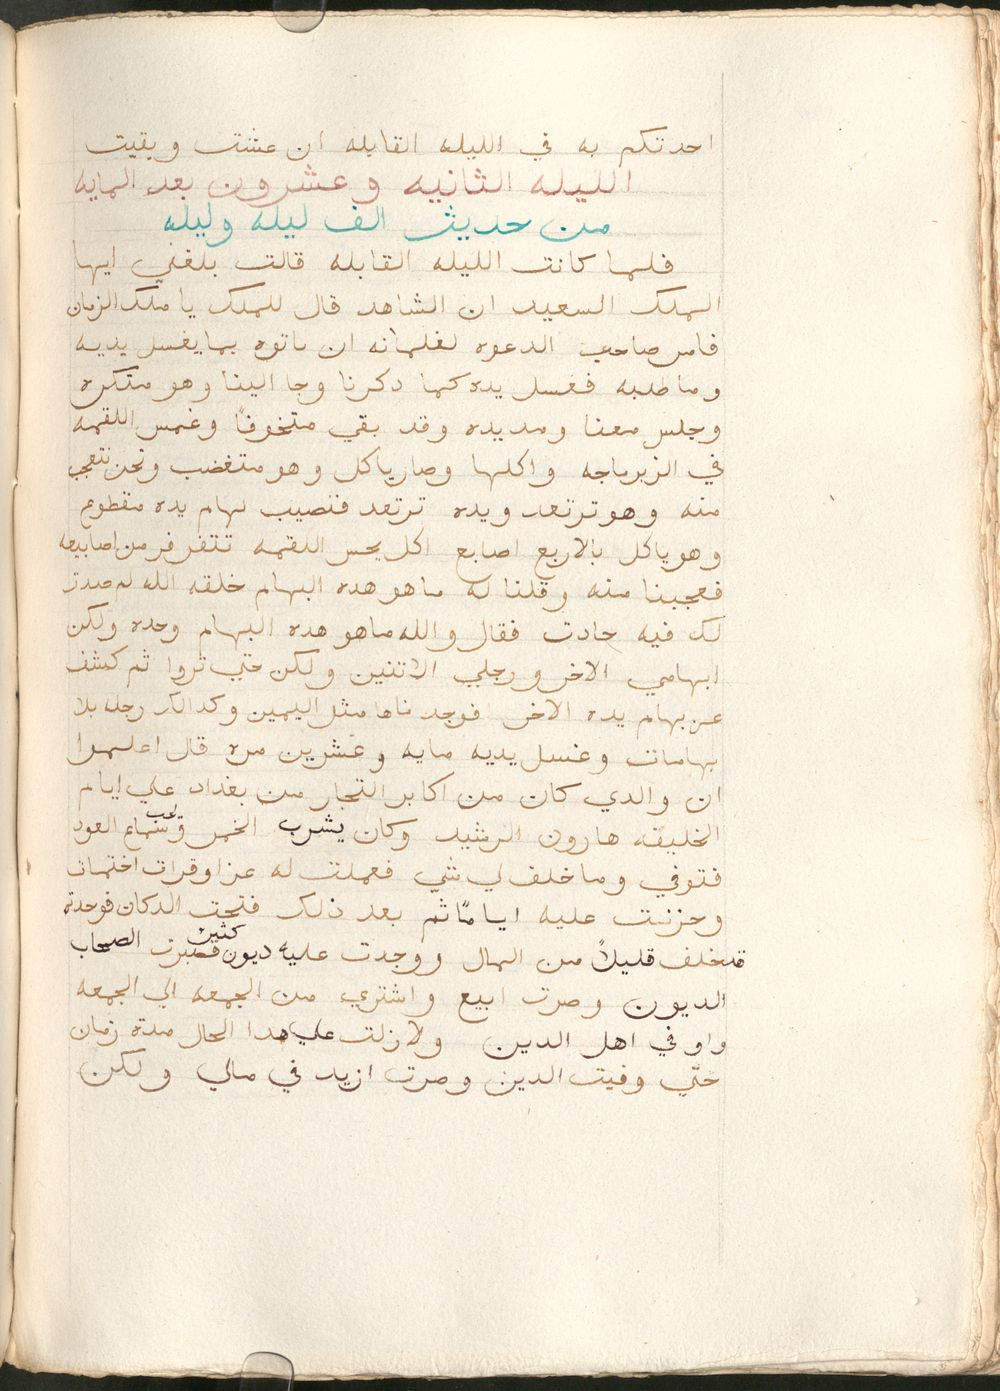 احدتكم به في الليله القابله ان عشت وبقيت
الليله الثانيه وعشرون بعد المايه
من حديث الف ليله وليله
فلما كانت الليله القابله قالت بلغني ايها
الملك السعيد ان الشاهد قال للملك يا ملك الزمان
فامر صاحب الدعوه لغلمانه ان ياتوه بما يغسل يديه
وما طلبه فغسل يده كما دكرنا وجا الينا وهو متكره
وجلس معنا ومد يده وقد بقي متخوفًا وغمس اللقمه
في الزيرباجه واكلها وصار ياكل وهو متغضب ونحن نتعجب
منه وهو ترتعد ويده ترتعد فنصيب بهام يده مقطوع
وهو ياكل بالاربع اصابع اكل يحس اللقمه تتفرفر من اصابيعه
فعجبنا منه وقلنا له ما هو هده البهام خلقه الله ام صدر
لك فيه حادت فقال والله ما هو هده البهام وحده ولكن
ابهامي الاخر ورجلي الاتنين ولكن حتي تروا ثم كشف
عن بهام يده الاخر فوجدناها مثل اليمين وكدالك رجله بلا
بهامات وغسل يديه مايه وعشرين مره قال اعلموا
ان والدي كان من اكابر التجار من بغداد علي ايام
الخليفه هارون الرشيد وكان يشرب الخمر ويحب سماع العود
فتوفي وما خلف لي شي فعملت له عزا وقرات اختمات
وحزنت عليه ايامًا ثم بعد ذلك فتحت الدكان فوجدته
قد خلف قليلاً من المال ووجدت عليه ديون كثير فصبرت الصحاب
الديون وصرت ابيع واشتري من الجمعه الي الجمعه
واوفي اهل الدين ولا زلت علي هدا الحال مدة زمان
حتي وفيت الدين وصرت ازيد في مالي ولكن